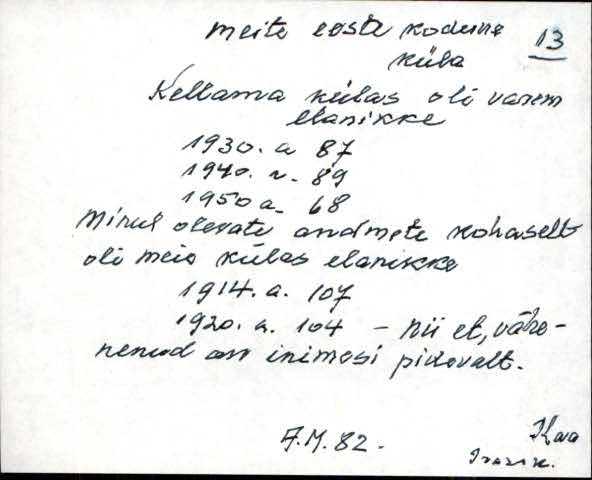 meite eeste kodune 13
küla
Kellamaa külas oli varem
elanikke
1930. a 87
1940. a. 89
1950 a. 68
Minul olevate andmete kohaselt
oli meie külas elanikke
1914. a. 107
1920. a. 104 - nii et, vähe-
nenud on inimesi pidevalt.
A.M. 82.